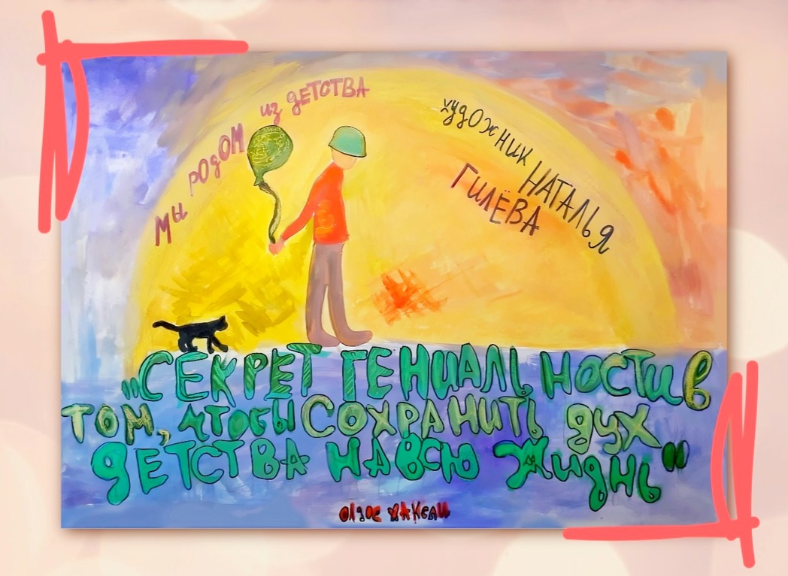 Мы родом из детства
художник Наталья
Гилёва
"Секрет гениальности в
том, чтобы сохранить дух
детства на всю жизнь"
Олдос Хаксли